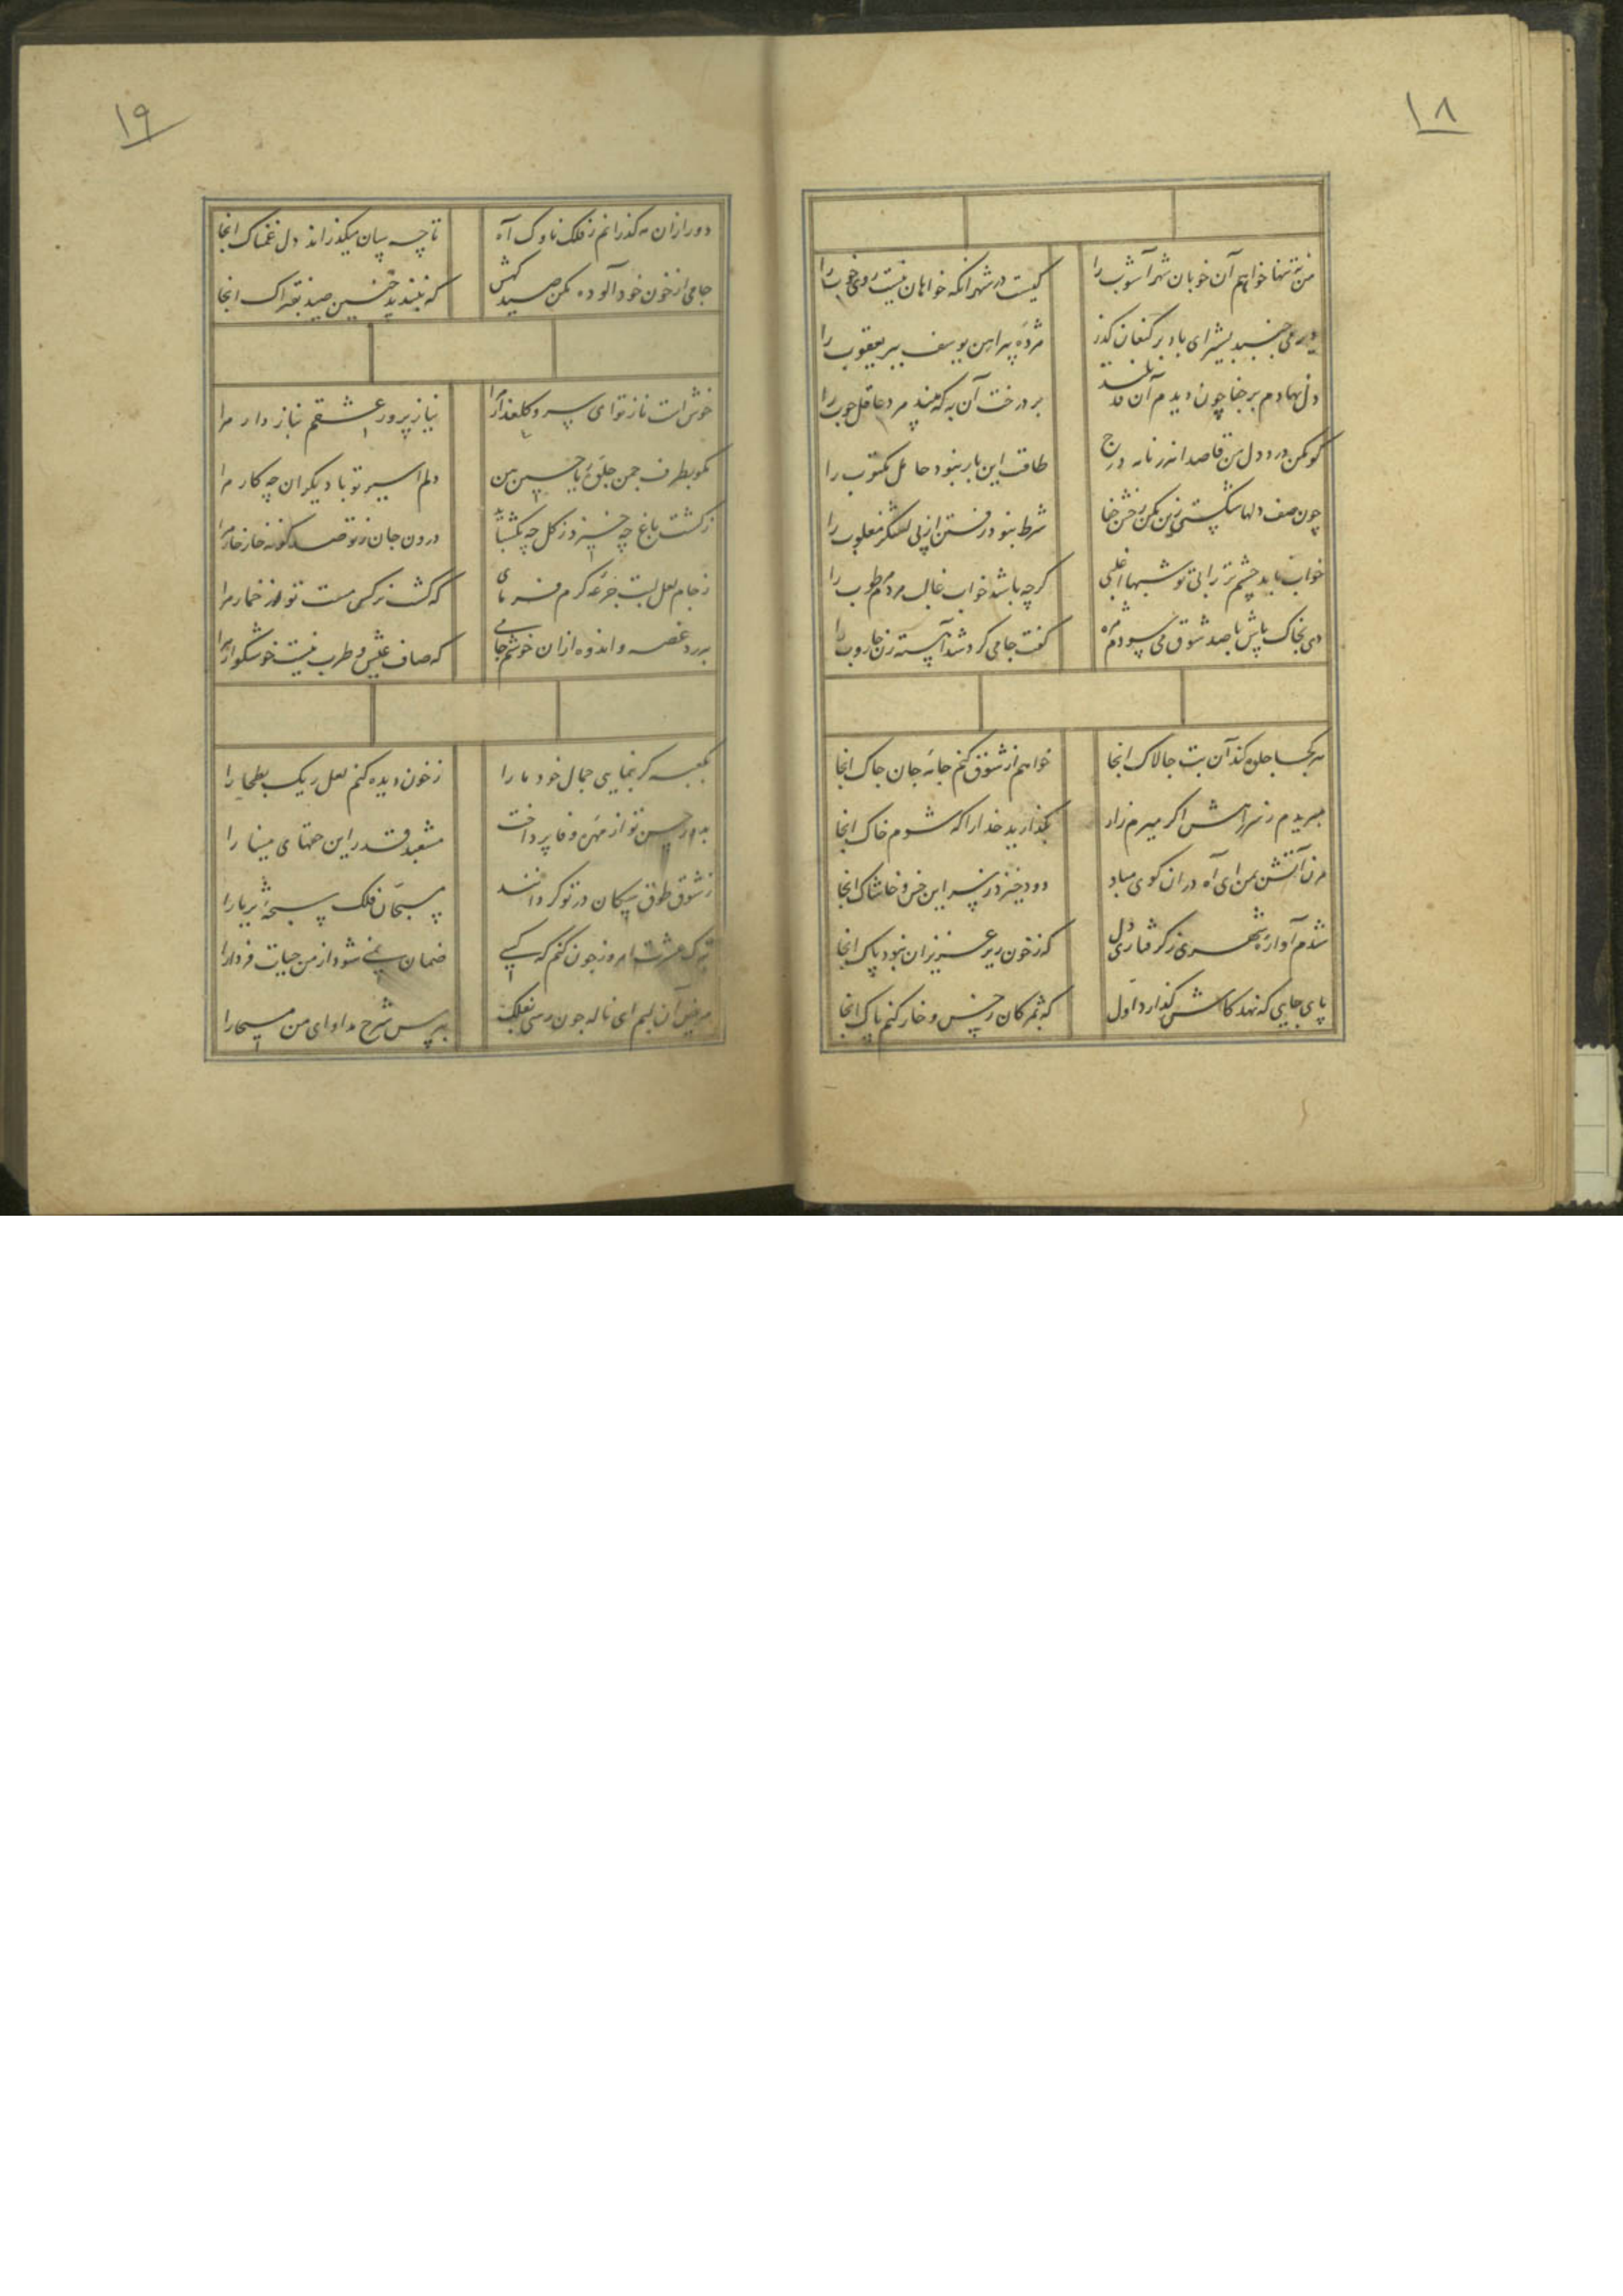 ١٨
من نه تنها خواهم آن خوبان شهر آشوب را
کیست در شهر انکه خواهان نیست روی خوب را
دیر می جنبد بشیر ای باد بر کنعان کذر
مژده پیراهن یوسف ببر یعقوب را
دل نهادم بر جفا چون دیدم آن قد بلند
بر درخت آن به که بیند مرد عاقل چوب را
کو مکن درد دل من قاصد اندر نامه درج
طاقت این بار نبود حامل مکتوب را
چون صف دلها شکستی زین مکن رخش جفا
شرط نبود رفتن از پی لشکر مغلوب را
خواب ناید چشم تر را بی تو شبها اغلبی
کرچه باشد خواب غالب مردم مرطوب را
دی بخاک پاش با صد شوق می سودم مژه
کفت جامی کرد شد آهسته زن جاروب را
هر کجا جلوه کند آن بت چالاک انجا
خواهم از شوق کنم جامه جان چاک انجا
مبریدم ز سر راهش اکر میرم زار
بکذارید خدا را که شوم خاک انجا
مزن آتش بمن ای آه در ان کوی مباد
دود خیزد ز سر این خس و خاشاک انجا
شدم آواره شهری ز کرفتاری دل
که ز خون ریز عزیزان نبود باک انجا
پای جایی که نهد کاش کذارد اول
که بمژکان ز خس و خار کنم پاک انجا
١٩
دور ازان مه کذرانم ز فلک ناوک آه
تا چه سان میکذراند دل غمناک انجا
جامی از خون خود آلوده مکن صید کهش
که نبندید چنین صید بفتراک انجا
خوش است ناز تو ای سرو کلعذار مرا
نیاز پرور عشقم بناز دار مرا
مکو بطرف چمن جلوۀ ریاحین من
دلم اسیر تو با دیکران چه کار مرا
ز کشت باغ چه خیزد ز کل چه بکشاید
درون جان ز تو صد کونه خار خار مرا
ز جام لعل لبت جرعه کرم فرمای
که کشت نرکس مست تو از خمار مرا
بدرد غصه و اندوه ازان خوشم جامی
که صاف عیش و طرب نیست خوشکوار مرا
بکعبه کر بنمایی جمال خود ما را
ز خون دیده کنم لعل ریک بطحا را
بدور حسن تو از مهره وفا پرداخت
مشعبد قدر این حقهای مینا را
ز شوق طوق سکان در تو کردانند
مسبحان فلک سبحۀ ثریا را
ترک عشرت امروز چون کنم که کسی
ضمان نمی شود از من حیات فردا را
مریض آن لبم ای ناله چون رسی بفلک
بپرس شرح مداوای من مسیحا را